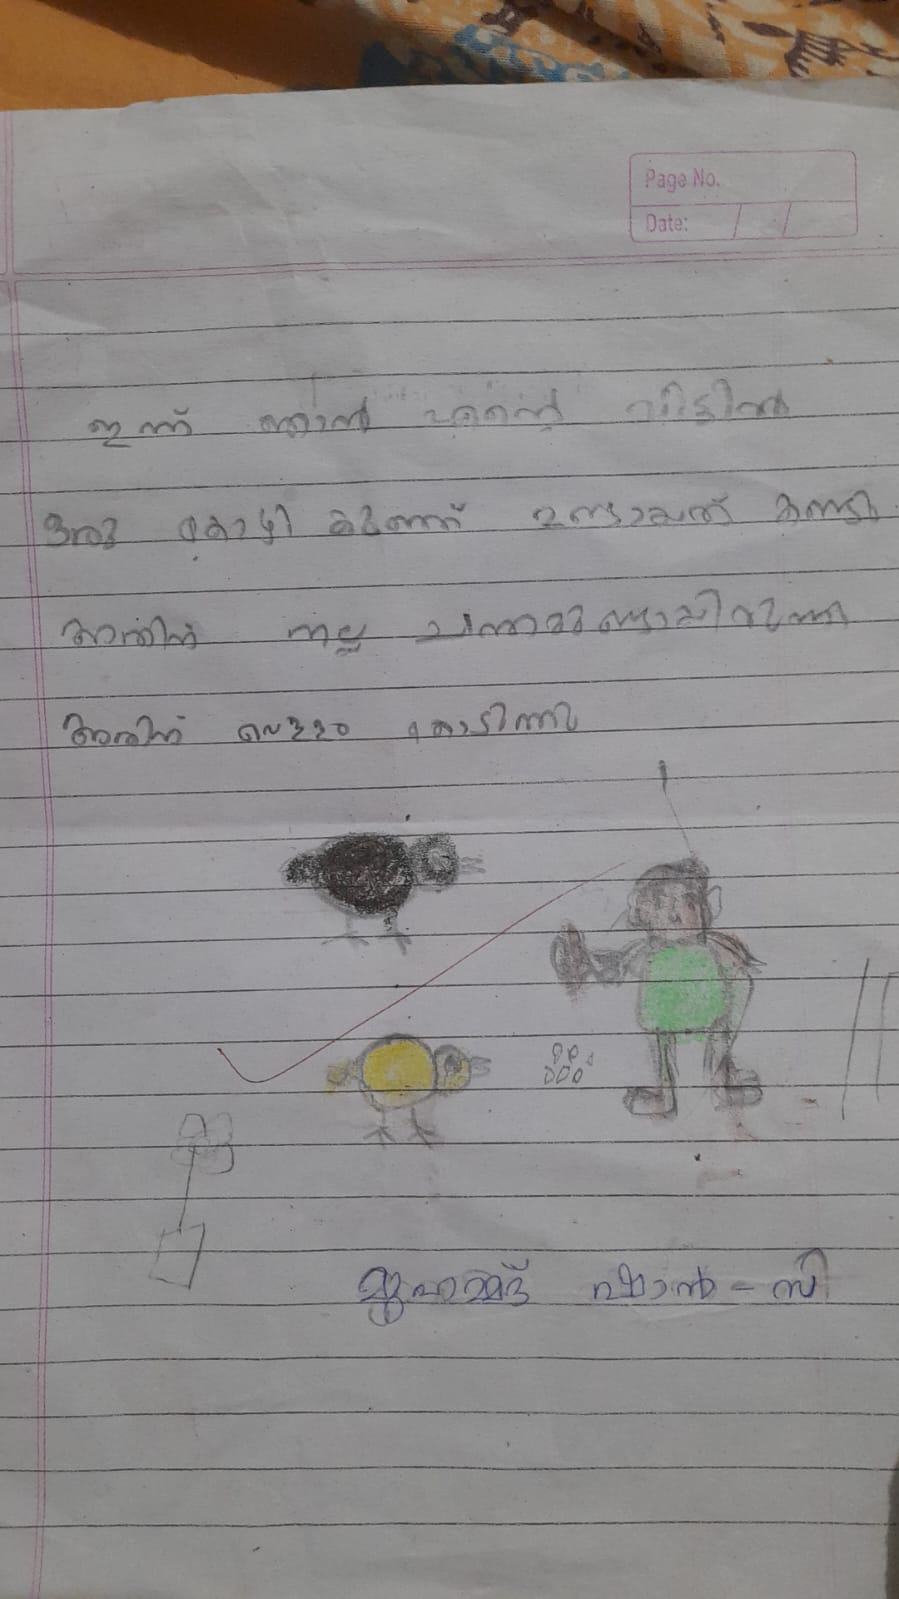 Page No.
Date: / /
ഇന്ന് ഞാൻ എന്റെ വീട്ടിൽ
ഒരു കോഴി കുഞ്ഞ് ഉണ്ടായത് കണ്ടു
അതിന് നല്ല ചന്തമുണ്ടായിരുന്നു
അതിന് വെള്ളം കൊടുത്തു
മുഹമ്മദ് ഷാൻ - സി